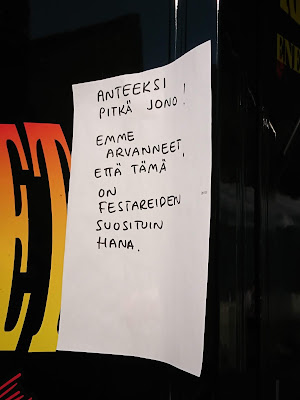 ANTEEKSI
PITKÄ JONO!
EMME
ARVANNEET,
ETTÄ TÄMÄ
ON
FESTAREIDEN
SUOSITUIN
HANA.
ET